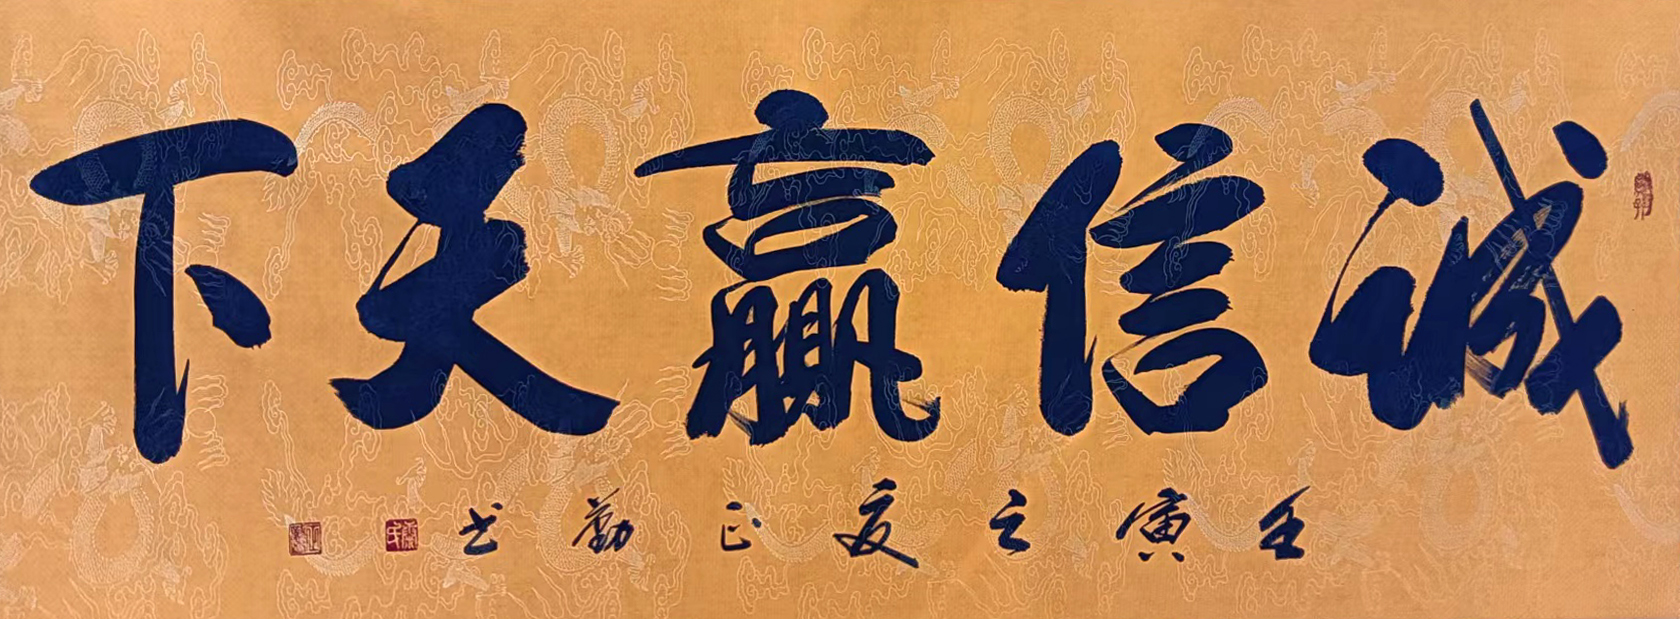 诚信赢天下
壬寅之夏正勤书